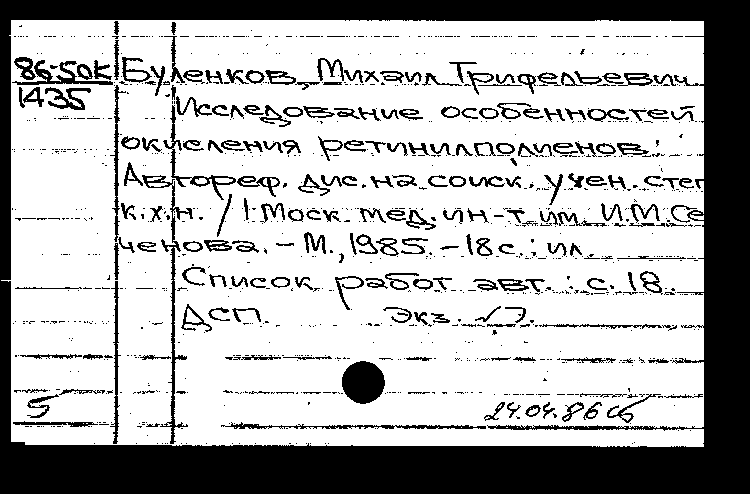 86-50К Буленков, Михаил Трифельевич.
1435 Исследование особенностей
окисления ретинилполиенов:
Автореф. дис. на соиск. учен. степ
к.х.н. / 1 Моск. мед. ин-т им. И.М. Се
ченова. – М., 1985. – 18 с. : ил.
Список работ авт. : с. 18.
ДСП. Экз.
5 24.04.86